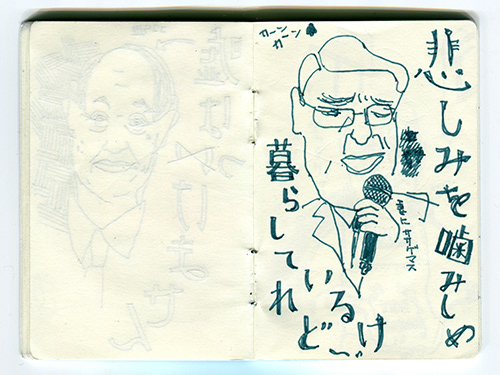 ガーン
ガーン
悲しみを噛みしめ
暮らして
いるけ
れど
ササゲマス
嘘は
つけません